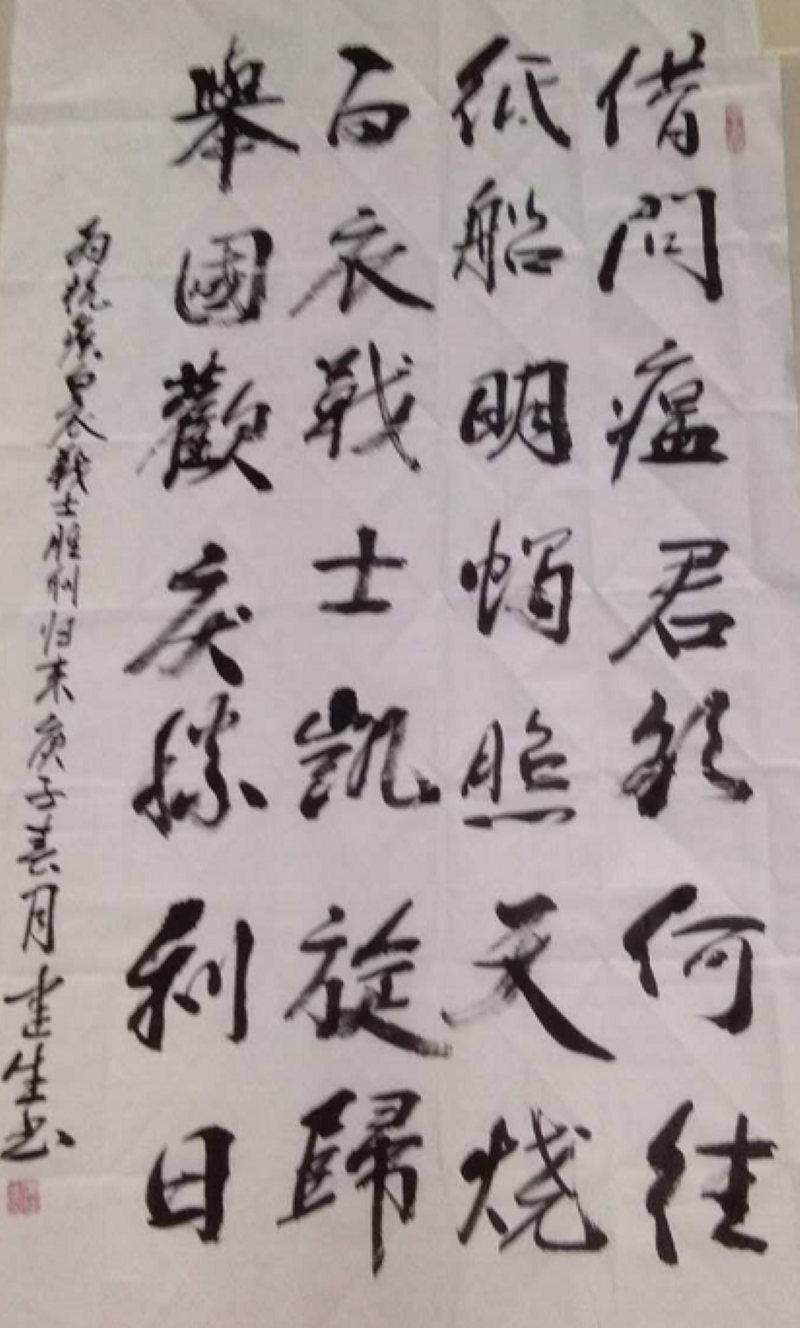 借問瘟君欲何往
纸船明烛照天烧
百衣戰士凯旋歸
舉國歡庆勝利日
为抗疫白衣战士胜利归来庚子春月建生书